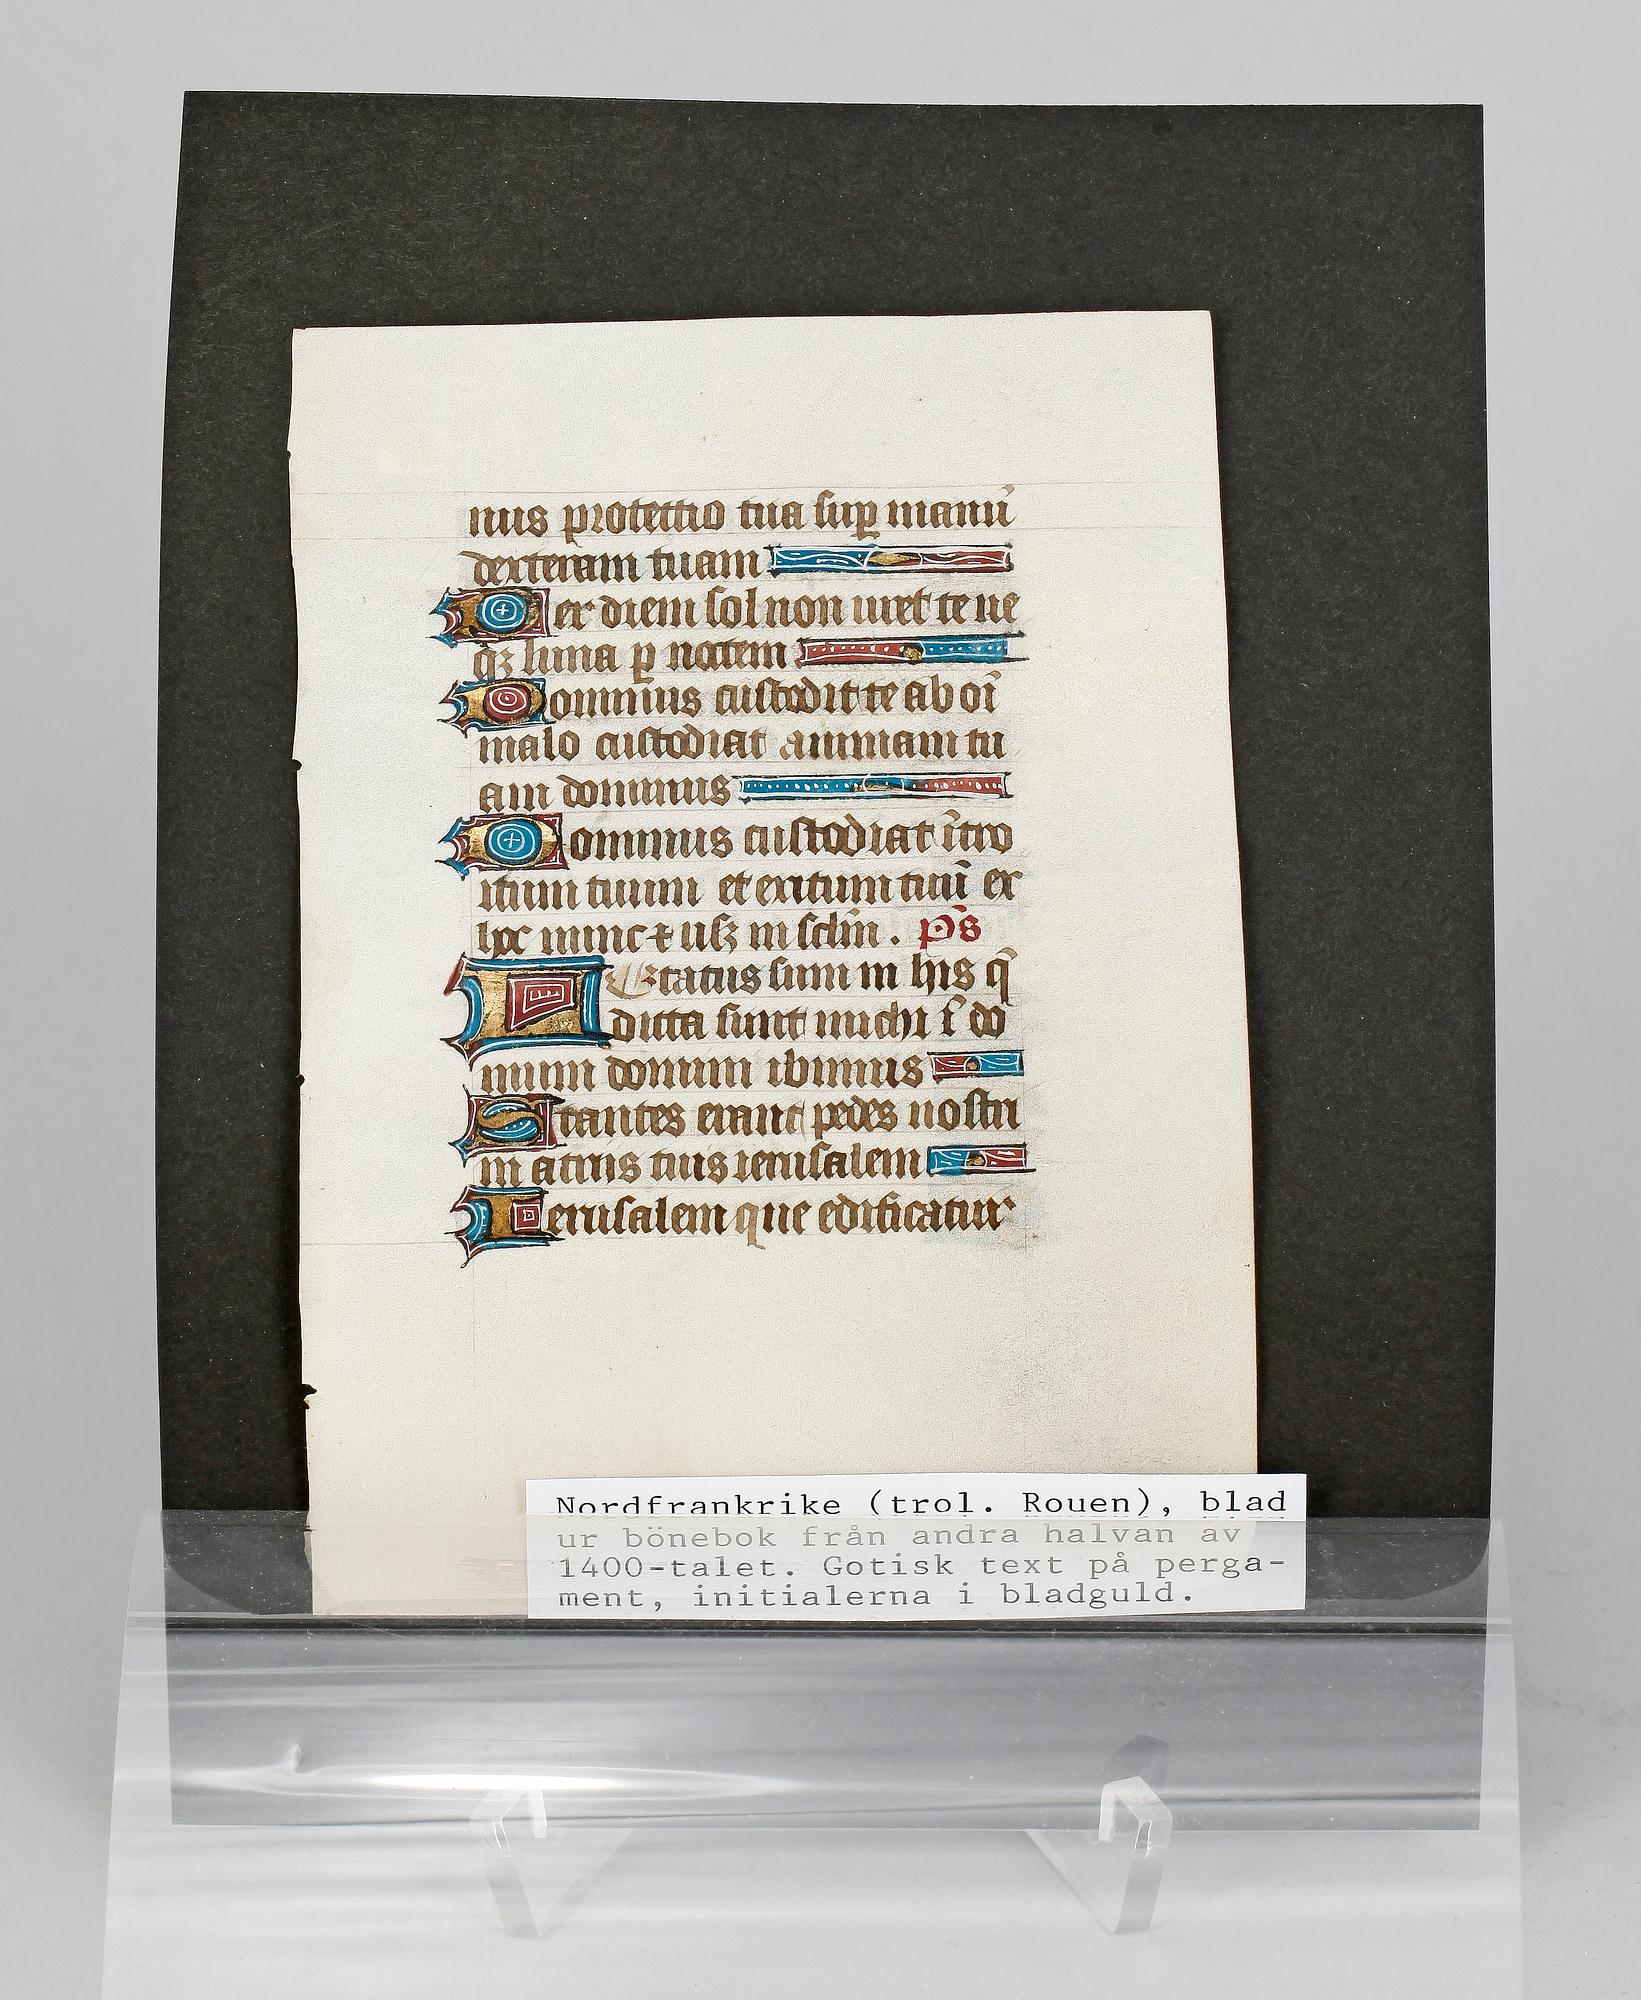 nus protectio tua sup manū
dexteram tuam
Per diem sol non uret te ne
qȝ luna p noctem
Dominus custodit te ab oī
malo custodiat animam tu
am dominus
Dominus custodiat ītro
itum tuum et exitum tuū ex
hoc nunc ⁊ usqȝ in sclm̄. ps̄
LEtatus sum in his q̄
dicta sunt michi ī do
mum domini ibimus
Stantes erant pedes nostri
in atriis tuis ierusalem
Ierusalem que edificatur
Nordfrankrike (trol. Rouen), blad
ur bönebok från andra halvan av
1400-talet. Gotisk text på perga-
ment, initialerna i bladguld.